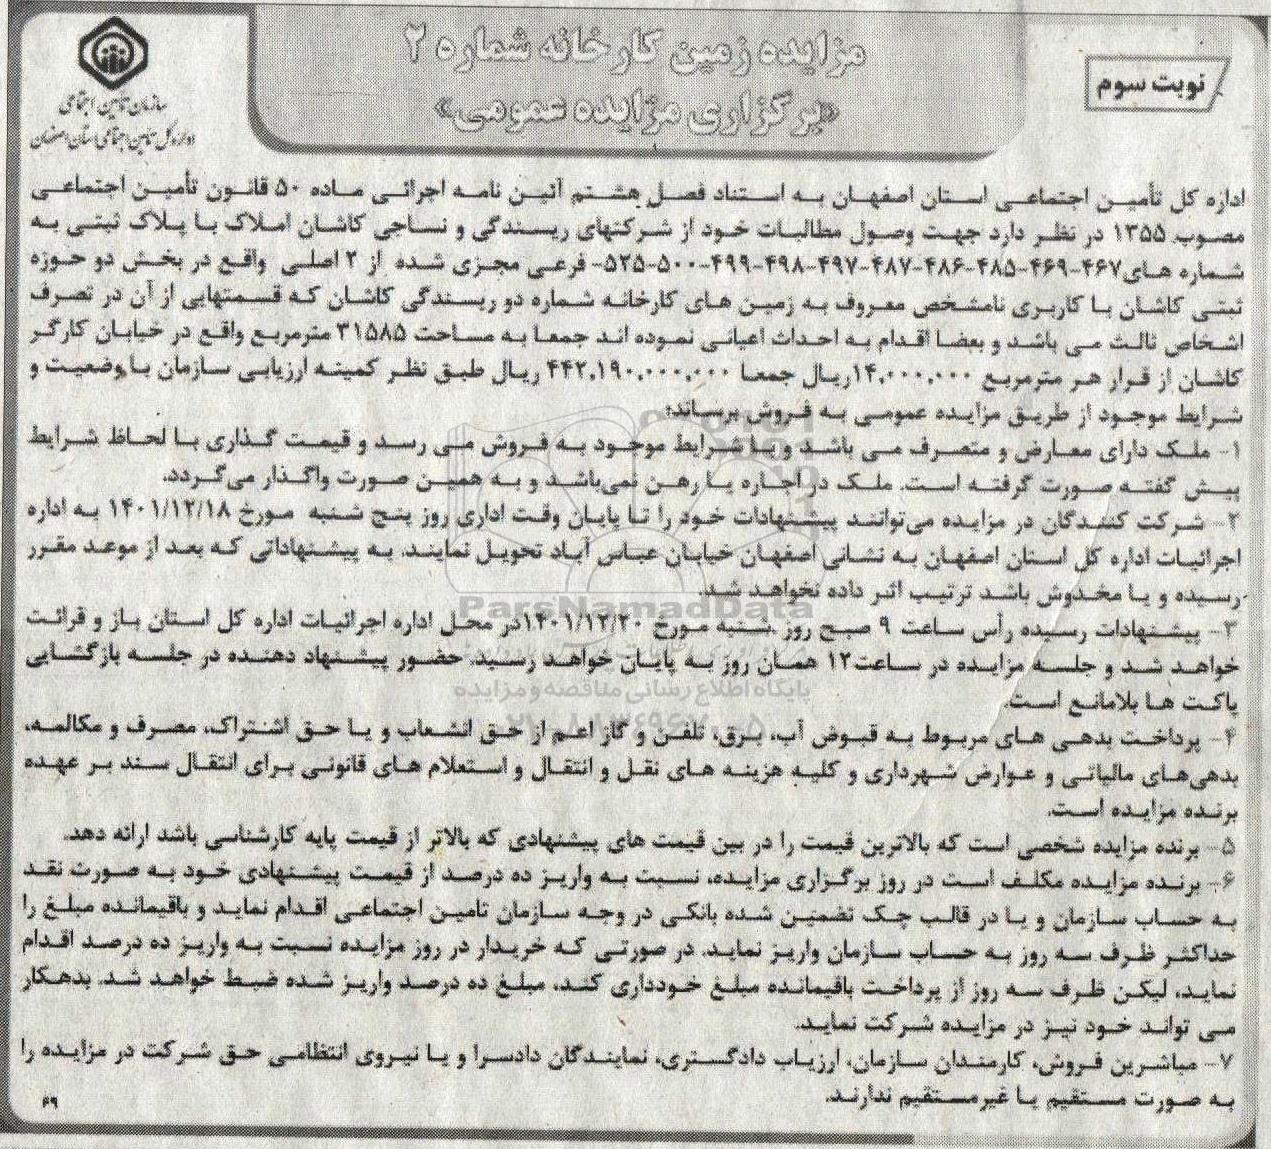 نوبت سوم
مزایده زمین کارخانه شماره ۲
«برگزاری مزایده عمومی»
سازمان تامین اجتماعی
اداره کل تامین اجتماعی استان اصفهان
اداره کل تأمین اجتماعی استان اصفهان به استناد فصل هشتم آئین نامه اجرائی ماده ۵۰ قانون تأمین اجتماعی
مصوب ۱۳۵۵ در نظر دارد جهت وصول مطالبات خود از شرکتهای ریسندگی و نساجی کاشان املاک با پلاک ثبتی به
شماره های۴۶۷-۴۶۹-۴۸۵-۴۸۶-۴۸۷-۴۹۷-۴۹۸-۴۹۹-۵۰۰-۵۲۵- فرعی مجزی شده از ۲ اصلی واقع در بخش دو حوزه
ثبتی کاشان با کاربری نامشخص معروف به زمین های کارخانه شماره دو ریسندگی کاشان که قسمتهایی از آن در تصرف
اشخاص ثالث می باشد و بعضا اقدام به احداث اعیانی نموده اند جمعا به مساحت ۳۱۵۸۵ مترمربع واقع در خیابان کارگر
کاشان از قرار هر مترمربع ۱۴,۰۰۰,۰۰۰ریال جمعا ۴۴۲,۱۹۰,۰۰۰,۰۰۰ ریال طبق نظر کمیته ارزیابی سازمان با وضعیت و
شرایط موجود از طریق مزایده عمومی به فروش برساند:
۱- ملک دارای معارض و متصرف می باشد و با شرایط موجود به فروش می رسد و قیمت گذاری با لحاظ شرایط
پیش گفته صورت گرفته است. ملک در اجاره یا رهن نمی‌باشد و به همین صورت واگذار می‌گردد.
۲- شرکت کنندگان در مزایده می‌توانند پیشنهادات خود را تا پایان وقت اداری روز پنج شنبه مورخ ۱۴۰۱/۱۲/۱۸ به اداره
اجرائیات اداره کل استان اصفهان به نشانی اصفهان خیابان عباس آباد تحویل نمایند. به پیشنهاداتی که بعد از موعد مقرر
رسیده و یا مخدوش باشد ترتیب اثر داده نخواهد شد.
ParsNamadData
۳- پیشنهادات رسیده رأس ساعت ۹ صبح روز شنبه مورخ ۱۴۰۱/۱۲/۲۰در محل اداره اجرائیات اداره کل استان باز و قرائت
خواهد شد و جلسه مزایده در ساعت۱۲ همان روز به پایان خواهد رسید. حضور پیشنهاد دهنده در جلسه بازگشایی
پایگاه اطلاع رسانی مناقصه و مزایده
پاکت ها بلامانع است.
۴- پرداخت بدهی های مربوط به قبوض آب، برق، تلفن و گاز اعم از حق انشعاب و یا حق اشتراک، مصرف و مکالمه،
بدهی‌های مالیاتی و عوارض شهرداری و کلیه هزینه های نقل و انتقال و استعلام های قانونی برای انتقال سند بر عهده
برنده مزایده است.
۵- برنده مزایده شخصی است که بالاترین قیمت را در بین قیمت های پیشنهادی که بالاتر از قیمت پایه کارشناسی باشد ارائه دهد.
۶- برنده مزایده مکلف است در روز برگزاری مزایده، نسبت به واریز ده درصد از قیمت پیشنهادی خود به صورت نقد
به حساب سازمان و یا در قالب چک تضمین شده بانکی در وجه سازمان تامین اجتماعی اقدام نماید و باقیمانده مبلغ را
حداکثر ظرف سه روز به حساب سازمان واریز نماید. در صورتی که خریدار در روز مزایده نسبت به واریز ده درصد اقدام
نماید، لیکن ظرف سه روز از پرداخت باقیمانده مبلغ خودداری کند، مبلغ ده درصد واریز شده ضبط خواهد شد. بدهکار
می تواند خود نیز در مزایده شرکت نماید.
۷- مباشرین فروش، کارمندان سازمان، ارزیاب دادگستری، نمایندگان دادسرا و یا نیروی انتظامی حق شرکت در مزایده را
به صورت مستقیم یا غیرمستقیم ندارند.
۶۹